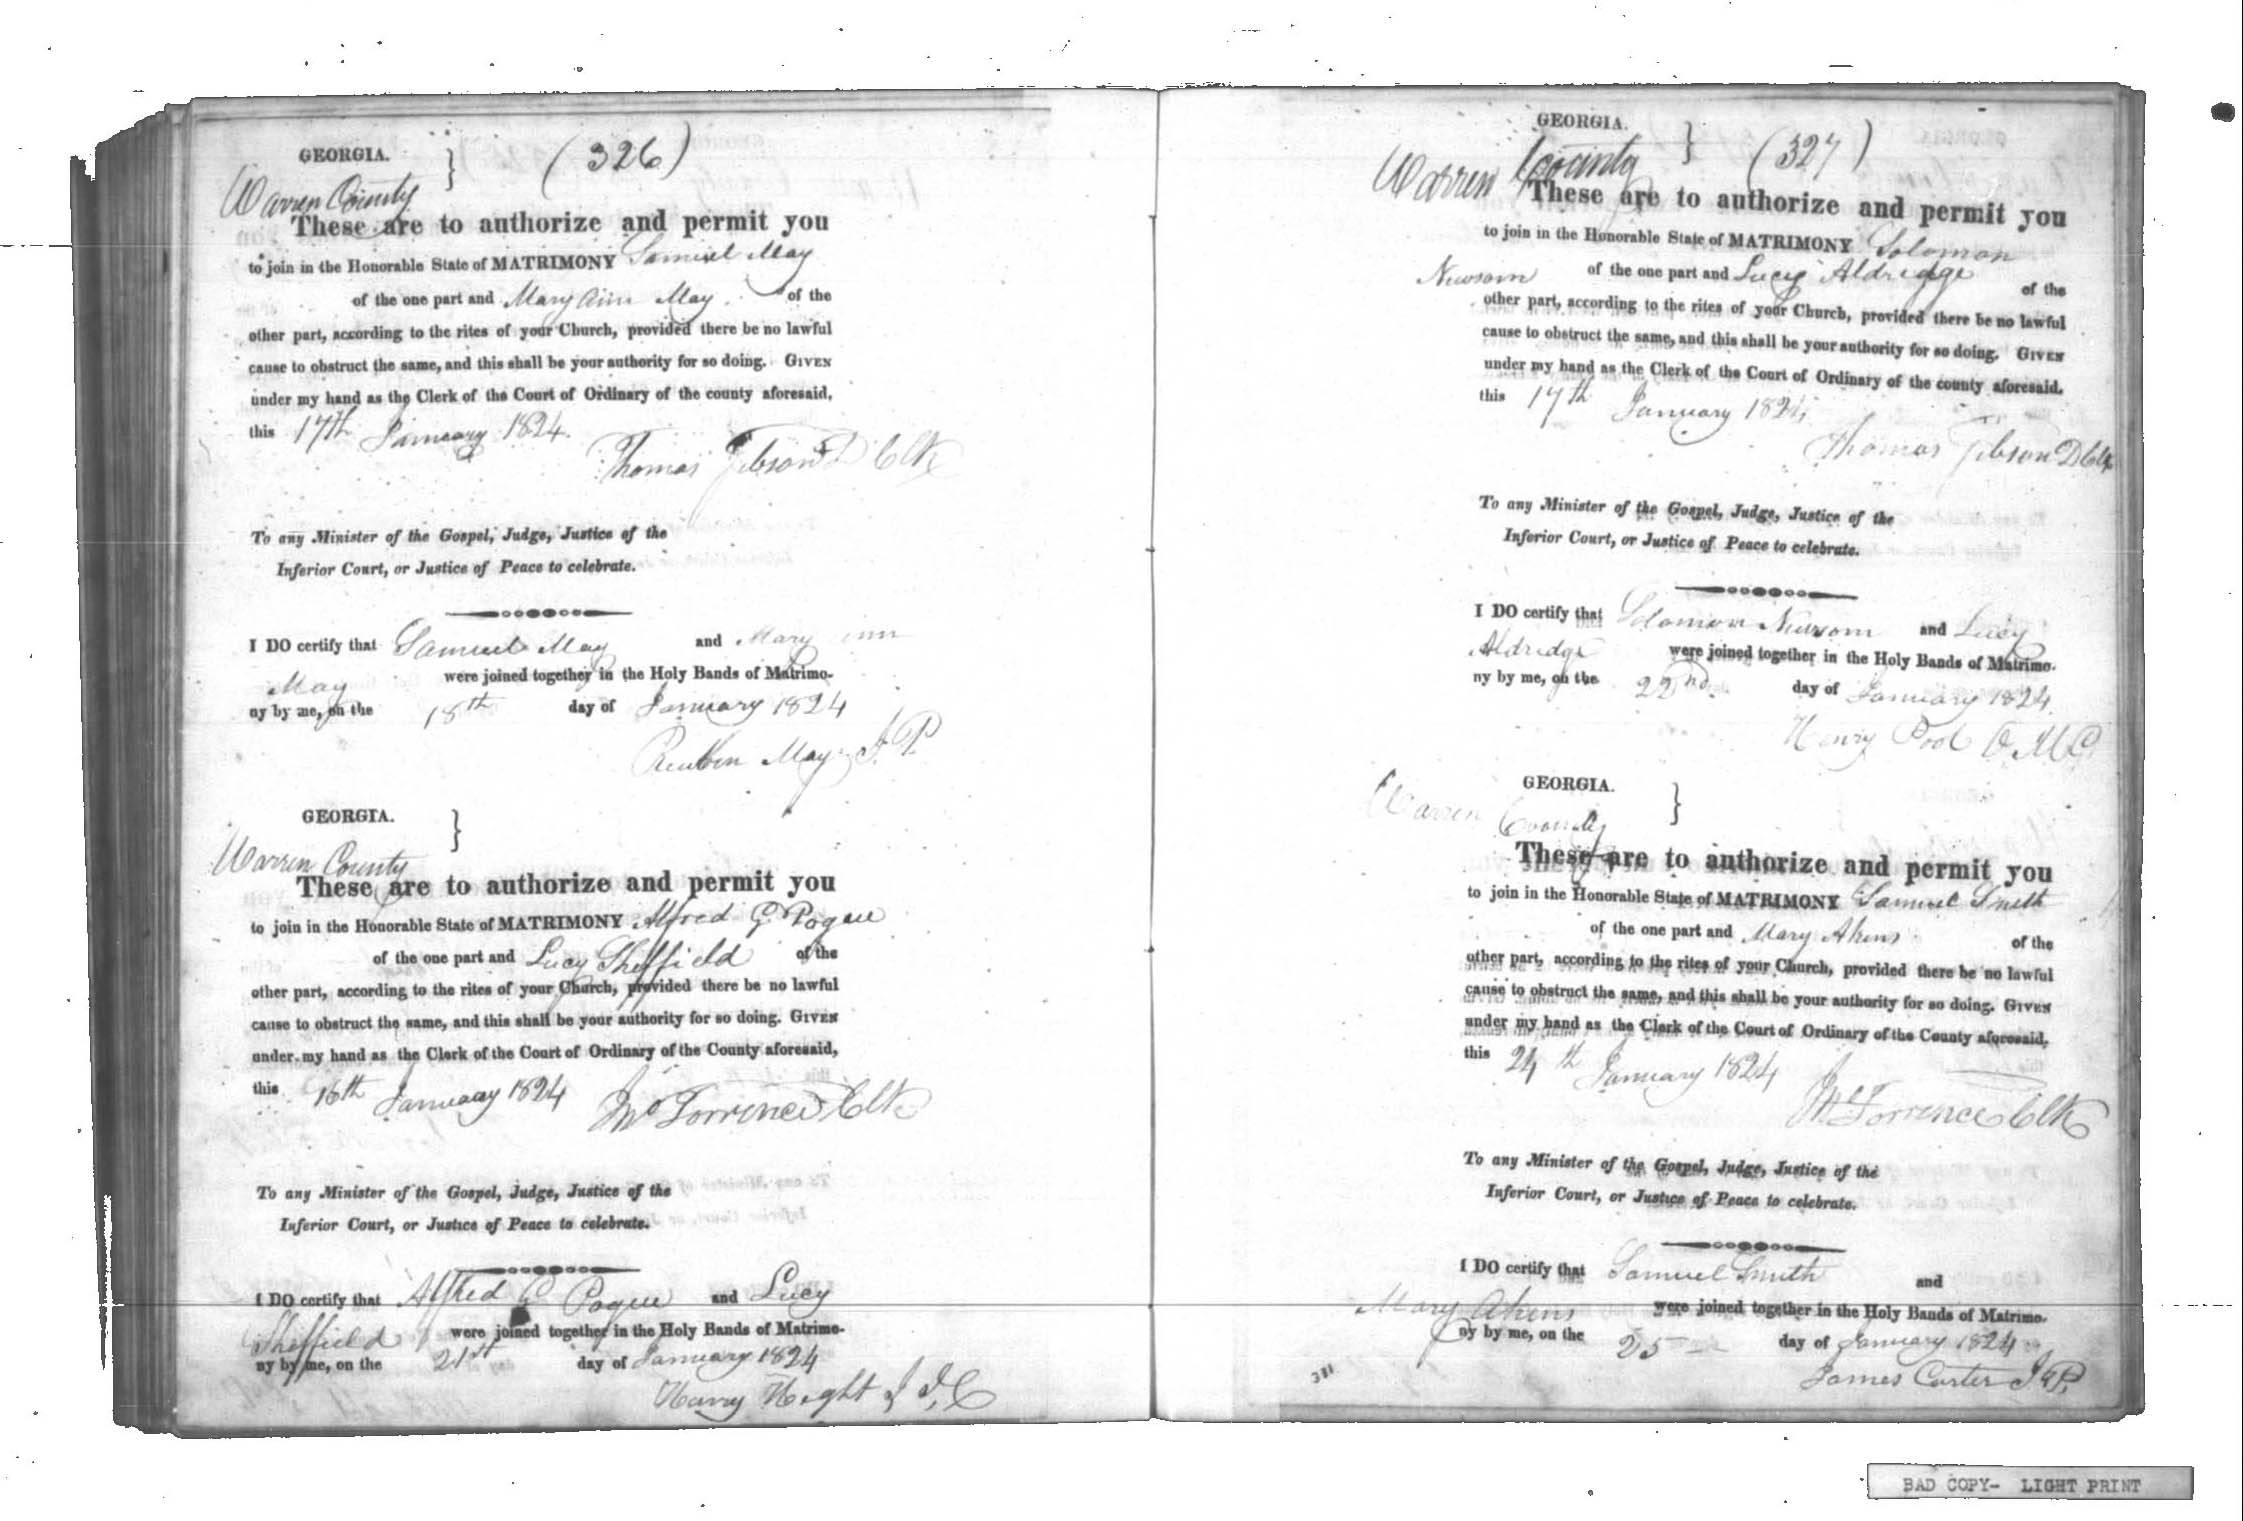 GEORGIA. } (326)
Warren County
These are to authorize and permit you
to join in the Honorable State of MATRIMONY Samuel May
of the one part and Mary Ann May of the
other part, according to the rites of your Church, provided there be no lawful
cause to obstruct the same, and this shall be your authority for so doing. GIVEN
under my hand as the Clerk of the Court of Ordinary of the county aforesaid,
this 17th January 1824.
Thomas Gibson D Clk
To any Minister of the Gospel, Judge, Justice of the
Inferior Court, or Justice of Peace to celebrate.
I DO certify that Samuel May and Mary Ann
May were joined together in the Holy Bands of Matrimo-
ny by me, on the 18th day of January 1824
Reuben May J. P.
GEORGIA. }
Warren County
These are to authorize and permit you
to join in the Honorable State of MATRIMONY Alfred G Pogue
of the one part and Lucy Sheffield of the
other part, according to the rites of your Church, provided there be no lawful
cause to obstruct the same, and this shall be your authority for so doing. GIVEN
under my hand as the Clerk of the Court of Ordinary of the County aforesaid,
this 16th January 1824
Jno Torrence Clk
To any Minister of the Gospel, Judge, Justice of the
Inferior Court, or Justice of Peace to celebrate.
I DO certify that Alfred G Pogue and Lucy
Sheffield were joined together in the Holy Bands of Matrimo-
ny by me, on the 21st day of January 1824
Harry Hight J I C
GEORGIA. } (327)
Warren County
These are to authorize and permit you
to join in the Honorable State of MATRIMONY Solomon
Newsom of the one part and Lucy Aldredge of the
other part, according to the rites of your Church, provided there be no lawful
cause to obstruct the same, and this shall be your authority for so doing. GIVEN
under my hand as the Clerk of the Court of Ordinary of the county aforesaid,
this 17th January 1824
Thomas Gibson D Clk
To any Minister of the Gospel, Judge, Justice of the
Inferior Court, or Justice of Peace to celebrate.
I DO certify that Solomon Newsom and Lucy
Aldridge were joined together in the Holy Bands of Matrimo-
ny by me, on the 22nd day of January 1824.
Henry Pool O. M. G
GEORGIA. }
Warren County
These are to authorize and permit you
to join in the Honorable State of MATRIMONY Samuel Smith
of the one part and Mary Akens of the
other part, according to the rites of your Church, provided there be no lawful
cause to obstruct the same, and this shall be your authority for so doing. GIVEN
under my hand as the Clerk of the Court of Ordinary of the County aforesaid,
this 24th January 1824
Jno Torrence Clk
To any Minister of the Gospel, Judge, Justice of the
Inferior Court, or Justice of Peace to celebrate.
I DO certify that Samuel Smith and
Mary Akens were joined together in the Holy Bands of Matrimo-
ny by me, on the 25 day of January 1824
James Carter J. P.
BAD COPY- LIGHT PRINT